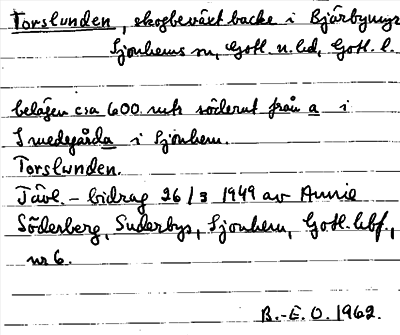 Torslunden, skogbeväxt backe i Bjärbyungs
Sjonhems sn, Gotl. n. hd, Gotl. l.
belägen csa 600 mtr söderut från a i
Smedegårda i Sjonhem.
Torslunden.
Tävl.-bidrag 26/3 1949 av Annie
Söderberg, Suderbys, Sjonhem, Gotl. lbf.,
nr 6.
B.-E. O. 1962.